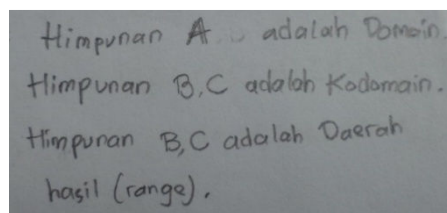 Himpunan A adalah Domain.
Himpunan B,C adalah Kodomain.
Himpunan B,C adalah Daerah
hasil (range).